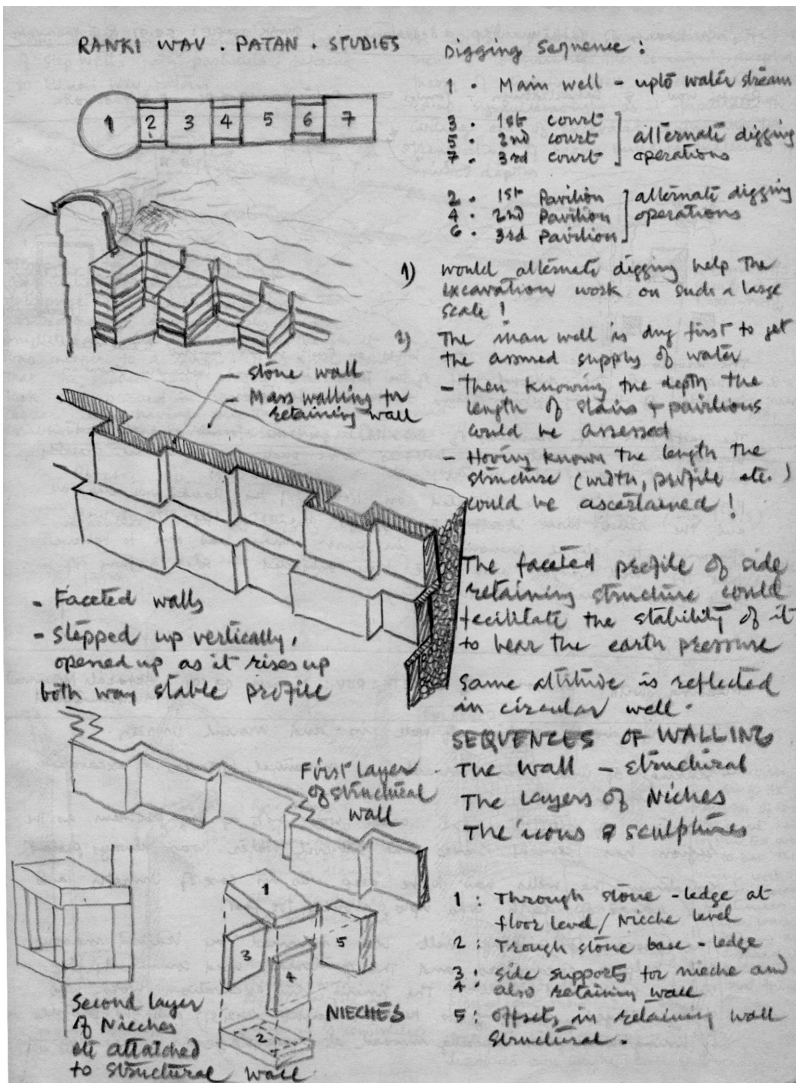 RANKI WAV . PATAN . STUDIES
1 2 3 4 5 6 7
stone wall
Mass walling for
retaining wall
- Faceted walls
- Stepped up vertically,
opened up as it rises up
both way stable profile
First layer
of structural
wall
Second layer
of Nieches
etc attatched
to structural wall
1
3
4
5
2
NIECHES
Digging Sequence :
1 . Main well - upto water stream
3 . 1st court
5 . 2nd court
7 . 3rd court
alternate digging
operations
2 . 1st Pavilion
4 . 2nd Pavilion
6 . 3rd Pavilion
alternate digging
operations
1) would alternate digging help the
excavation work on such a large
scale !
2) The main well is dug first to get
the assured supply of water
- Then knowing the depth the
length of stairs + pavilions
could be assessed
- Having known the length the
structure (width, profile etc.)
could be ascertained !
The faceted profile of side
retaining structure could
facilitate the stability of it
to bear the earth pressure
Same attitude is reflected
in circular well.
SEQUENCES OF WALLING
The Wall - structural
The Layers of Niches
The icons & sculptures
1 : Through stone - ledge at
floor level / Nieche level
2 : Trough stone base - ledge
3 : side supports for nieche and
4 . also retaining wall
5 : offsets in retaining wall
structural .